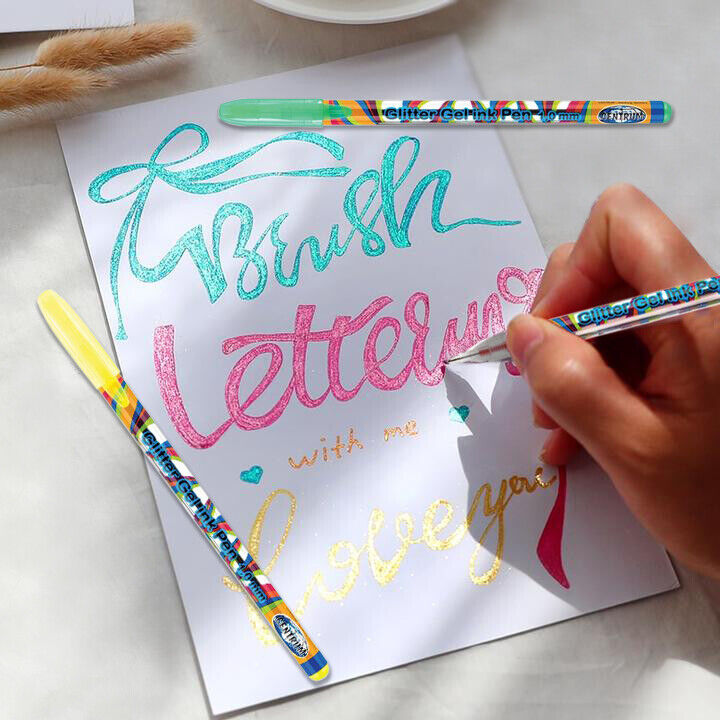 Glitter Gel ink Pen 1.0 mm CENTRUM
Brush
Lettering
with me
Love you
Glitter Gel ink Pen
Glitter Gel ink Pen 1.0 mm CENTRUM